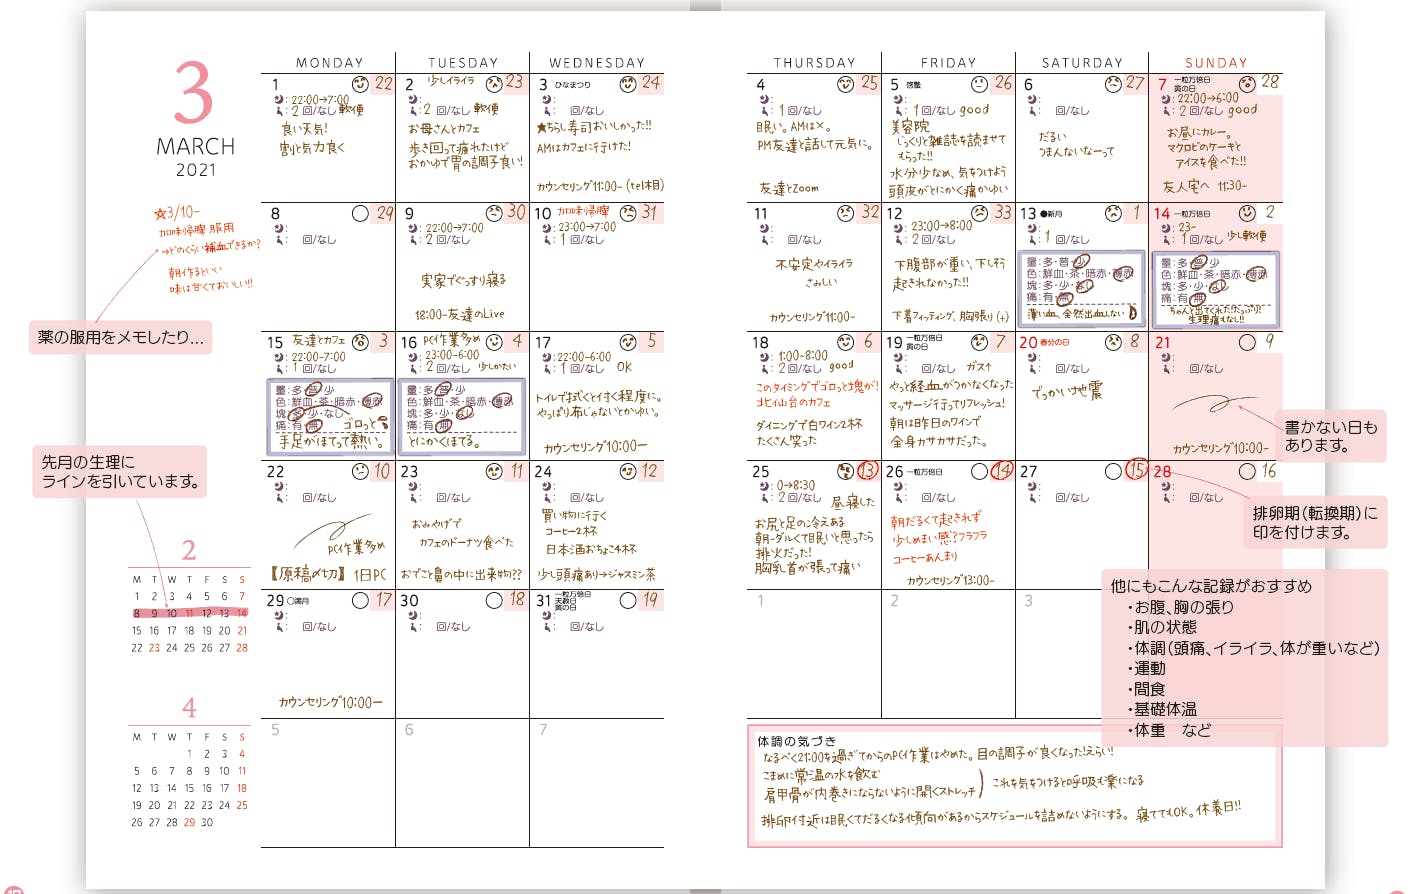 3
MARCH
2021
☆3/10-
加味帰脾 服用
→どのくらい補血できるか?
朝作るといい
味は甘くておいしい!!
薬の服用をメモしたり…
先月の生理に
ラインを引いています。
2
M T W T F S S
1 2 3 4 5 6 7
8 9 10 11 12 13 14
15 16 17 18 19 20 21
22 23 24 25 26 27 28
4
M T W T F S S
1 2 3 4
5 6 7 8 9 10 11
12 13 14 15 16 17 18
19 20 21 22 23 24 25
26 27 28 29 30
MONDAY TUESDAY WEDNESDAY THURSDAY FRIDAY SATURDAY SUNDAY
1 22
: 22:00→7:00
: 2 回/なし 軟便
良い天気!
割と気力良く
2 少しイライラ 23
:
: 2 回/なし 軟便
お母さんとカフェ
歩き回って疲れたけど
おかゆで胃の調子良い!
3 ひなまつり 24
:
: 回/なし
★ちらし寿司おいしかった!!
AMはカフェに行けた!
カウンセリング11:00- (tel本目)
4 25
:
: 1 回/なし
眠い。AMは×。
PM友達と話して元気に。
友達とZoom
5 啓蟄 26
:
: 1 回/なし good
美容院
じっくりと雑誌を読ませて
もらった!!
水分少なめ、気をつけよう
頭皮がとにかく痛かゆい
6 27
:
: 回/なし
だるい
つまんないなーって
7 一粒万倍日 28
寅の日
: 22:00→6:00
: 2 回/なし good
お昼にカレー。
マクロビのケーキと
アイスを食べた!!
友人宅へ 11:30-
8 29
:
: 回/なし
9 30
: 22:00→7:00
: 2 回/なし
実家でぐっすり寝る
18:00-友達のLive
10 加味帰脾 31
: 23:00→7:00
: 1 回/なし
11 32
:
: 回/なし
不安定やイライラ
さみしい
カウンセリング11:00-
12 33
: 23:00→8:00
: 2 回/なし
下腹部が重い、下しそう
起きれなかった!!
下着フィッティング、胸張り(+)
13 ●新月 1
:
: 1 回/なし
量:多・普・少
色:鮮血・茶・暗赤・薄赤
塊:多・少・なし
痛:有・無
薄い血、全然出血しない
14 一粒万倍日 2
: 23-
: 1 回/なし 少し軟便
量:多・普・少
色:鮮血・茶・暗赤・薄赤
塊:多・少・なし
痛:有・無
ちゃんと出てくれた!たっぷり!
生理痛もなし!!
15 友達とカフェ 3
: 22:00-7:00
: 1 回/なし
量:多・普・少
色:鮮血・茶・暗赤・薄赤
塊:多・少・なし
痛:有・無 ゴロっと
手足がほてって熱い。
16 PC作業多め 4
: 23:00-6:00
: 2 回/なし 少しかたい
量:多・普・少
色:鮮血・茶・暗赤・薄赤
塊:多・少・なし
痛:有・無
とにかくほてる。
17 5
: 22:00-6:00
: 1 回/なし OK
トイレで拭くとすく程度に。
やっぱり布じゃないとかゆい。
カウンセリング10:00-
18 6
: 1:00-8:00
: 2 回/なし good
このタイミングでゴロっと塊が!
北仙台のカフェ
ダイニングで白ワイン2杯
たくさん笑った
19 一粒万倍日 7
寅の日
:
: 回/なし ガス↑
やっと経血がつかなくなった
マッサージ行ってリフレッシュ!
朝は昨日のワインで
全身カサカサだった。
20 春分の日 8
:
: 2 回/なし
でっかい地震
21 9
:
: 回/なし
カウンセリング10:00-
書かない日も
あります。
22 10
:
: 回/なし
PC作業多め
【原稿〆切】 1日PC
23 11
:
: 回/なし
おみやげで
カフェのドーナツ食べた
おでこと鼻の中に出来物??
24 12
:
: 回/なし
買い物に行く
コーヒー2杯
日本酒おちょこ4杯
少し頭痛あり→ジャスミン茶
25 13
: 0→8:30
: 2 回/なし 昼寝した
お尻と足の冷えある
朝-ダルくて眠いと思ったら
排火だった!
胸乳首が張って痛い
26 一粒万倍日 14
:
: 回/なし
朝だるくて起きれず
少しめまい感?フラフラ
コーヒーあんまり
カウンセリング13:00-
27 15
:
: 回/なし
28 16
:
: 回/なし
排卵期(転換期)に
印を付けます。
29 ○満月 17
:
: 回/なし
カウンセリング10:00-
30 18
:
: 回/なし
31 一粒万倍日 19
天赦日
寅の日
:
: 回/なし
1
2
3
他にもこんな記録がおすすめ
・お腹、胸の張り
・肌の状態
・体調(頭痛、イライラ、体が重いなど)
・運動
・間食
・基礎体温
・体重 など
5
6
7
体調の気づき
なるべく21:00を過ぎてからのPC作業はやめた。目の調子が良くなった!えらい!
こまめに常温の水を飲む
肩甲骨が内巻きにならないように開くストレッチ
これを気をつけると呼吸も楽になる
排卵付近は眠くてだるくなる傾向があるからスケジュールを詰めないようにする。寝ててもOK。休養日!!